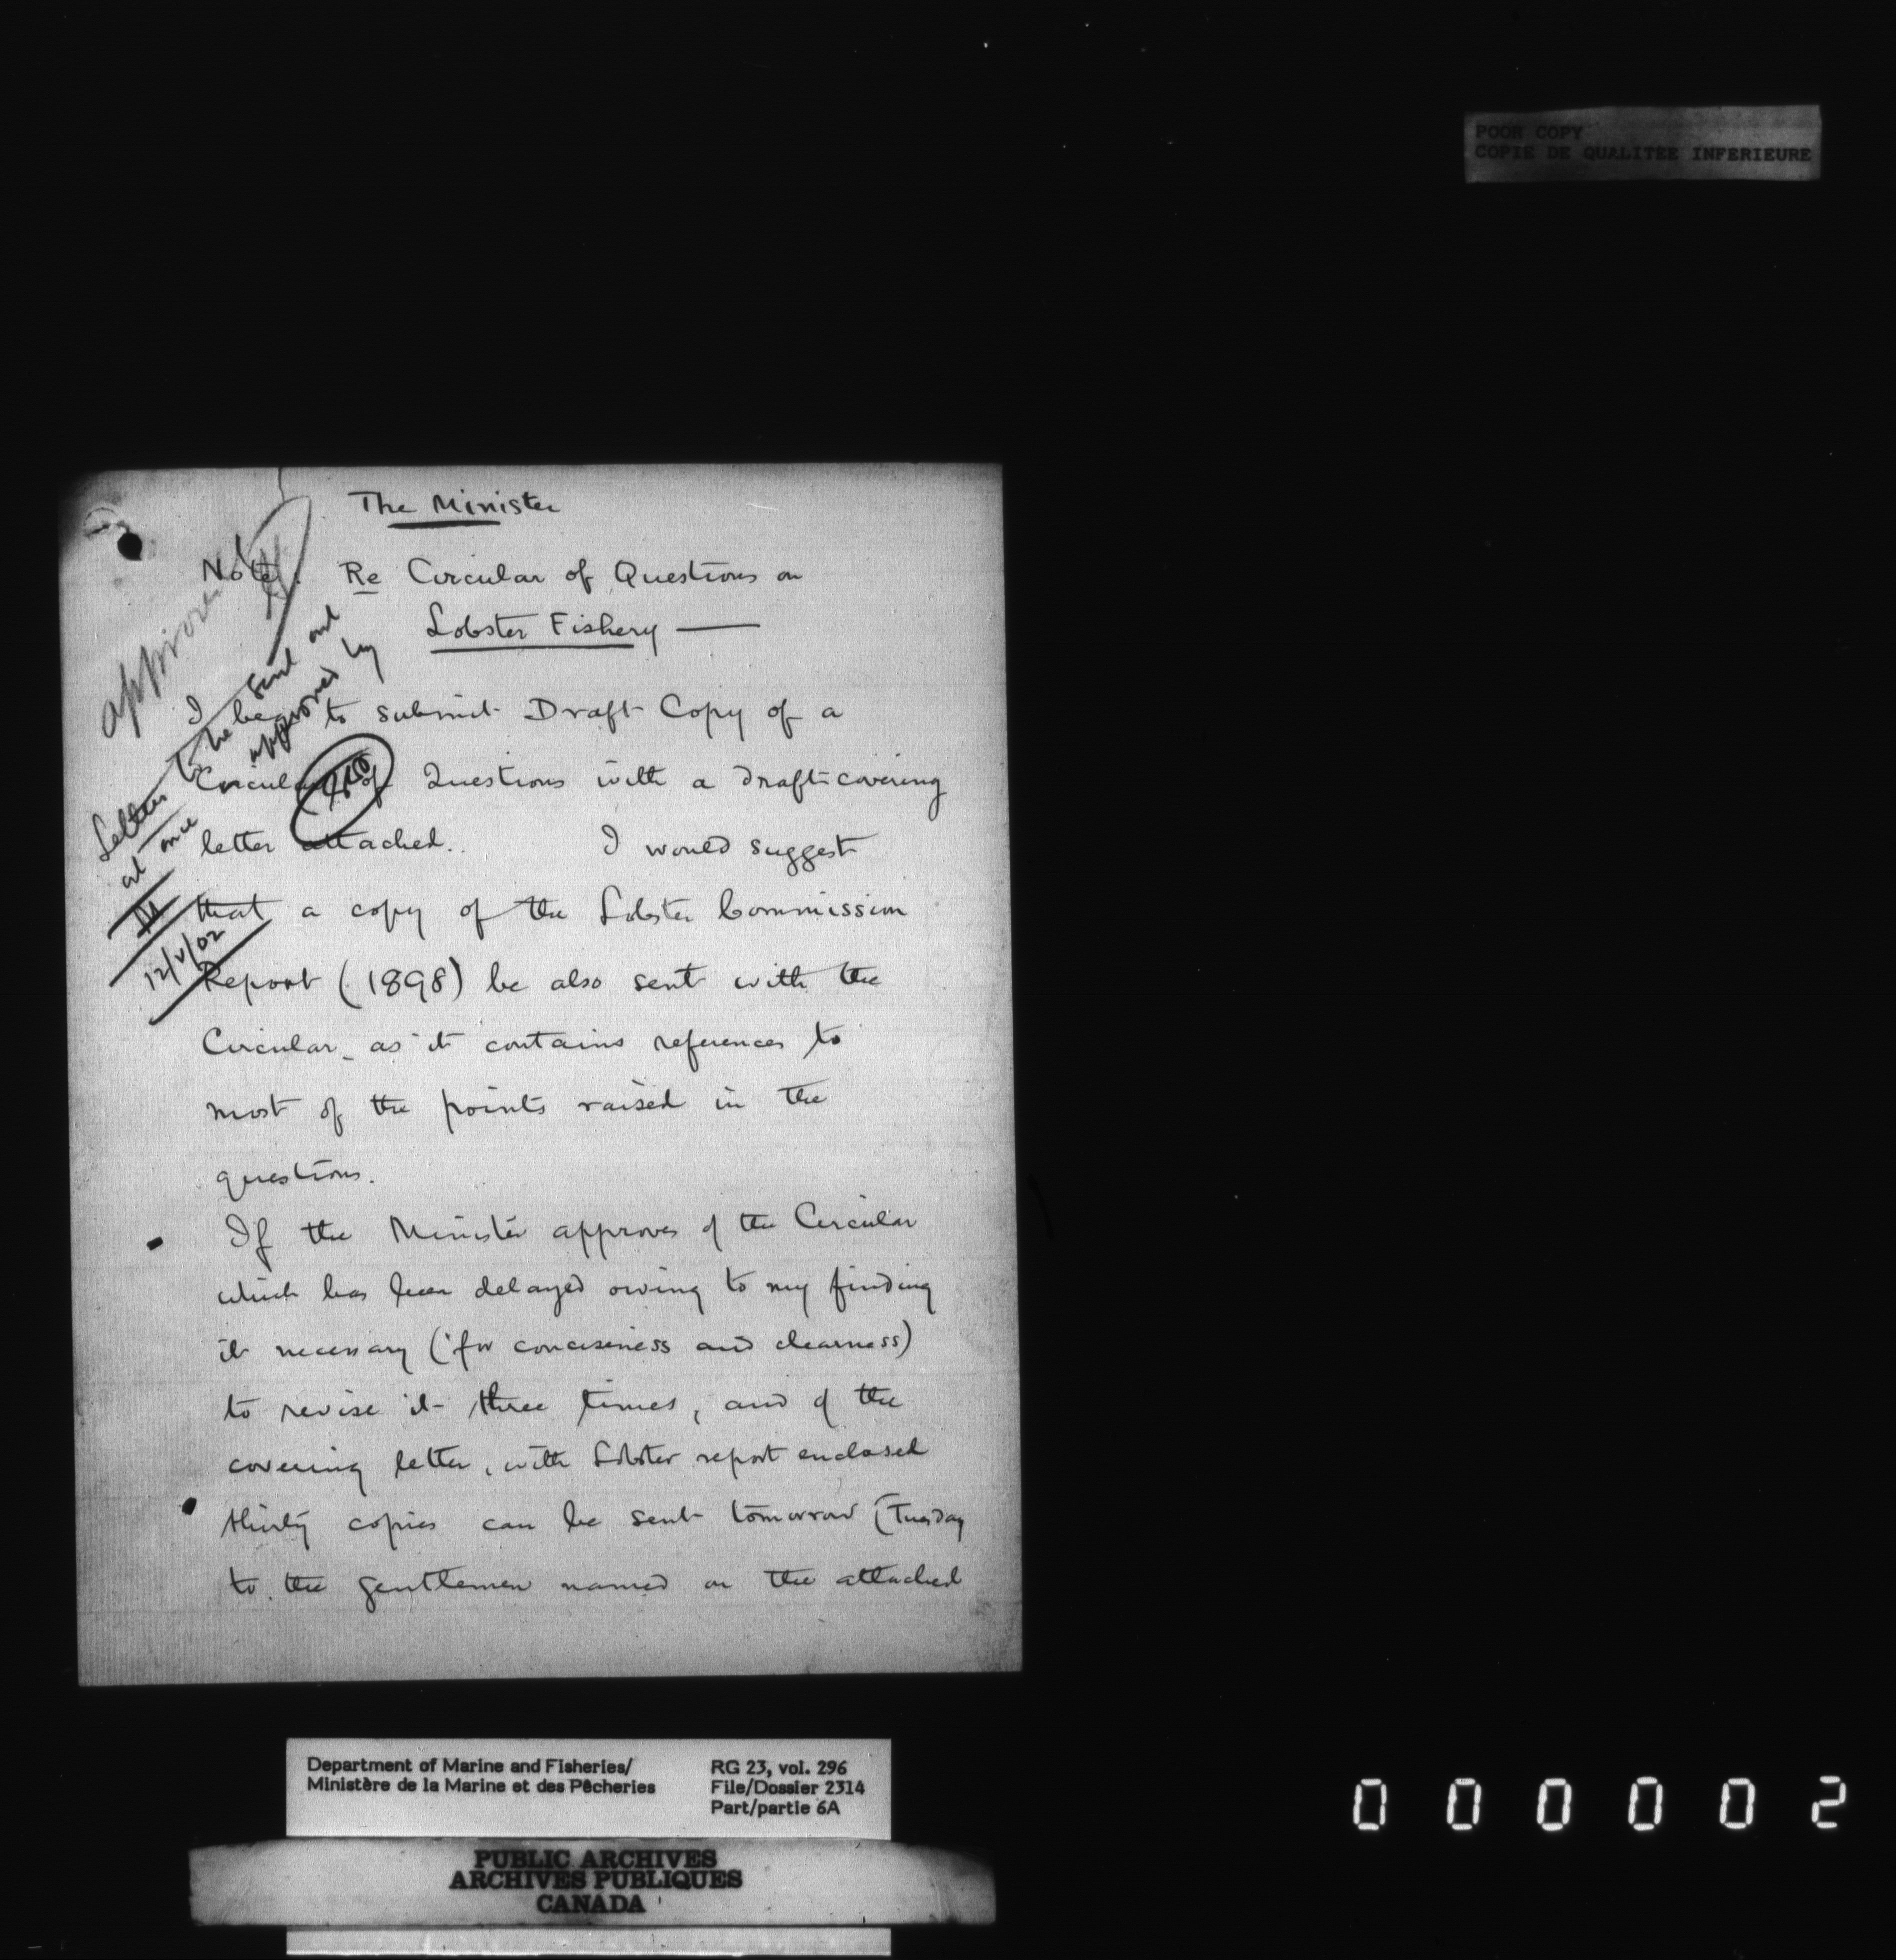 POOR COPY
COPIE DE QUALITEE INFERIEURE
The Minister
Note: Re Circular of Questions on
Lobster Fishery —
approved
Letters to be sent out
at once approved by
12/V/02
I beg to submit Draft Copy of a
Circular of Questions with a draft covering
letter attached. I would suggest
that a copy of the Lobster Commission
Report (1898) be also sent with the
Circular - as it contains references to
most of the points raised in the
questions.
If the Minister approves of the Circular
which has been delayed owing to my finding
it necessary (for conciseness and clearness)
to revise it three times, and of the
covering letter, with Lobster report enclosed
thirty copies can be sent tomorrow (Tuesday
to the gentlemen named on the attached
Department of Marine and Fisheries/
Ministère de la Marine et des Pêcheries
RG 23, vol. 296
File/Dossier 2314
Part/partie 6A
PUBLIC ARCHIVES
ARCHIVES PUBLIQUES
CANADA
000002